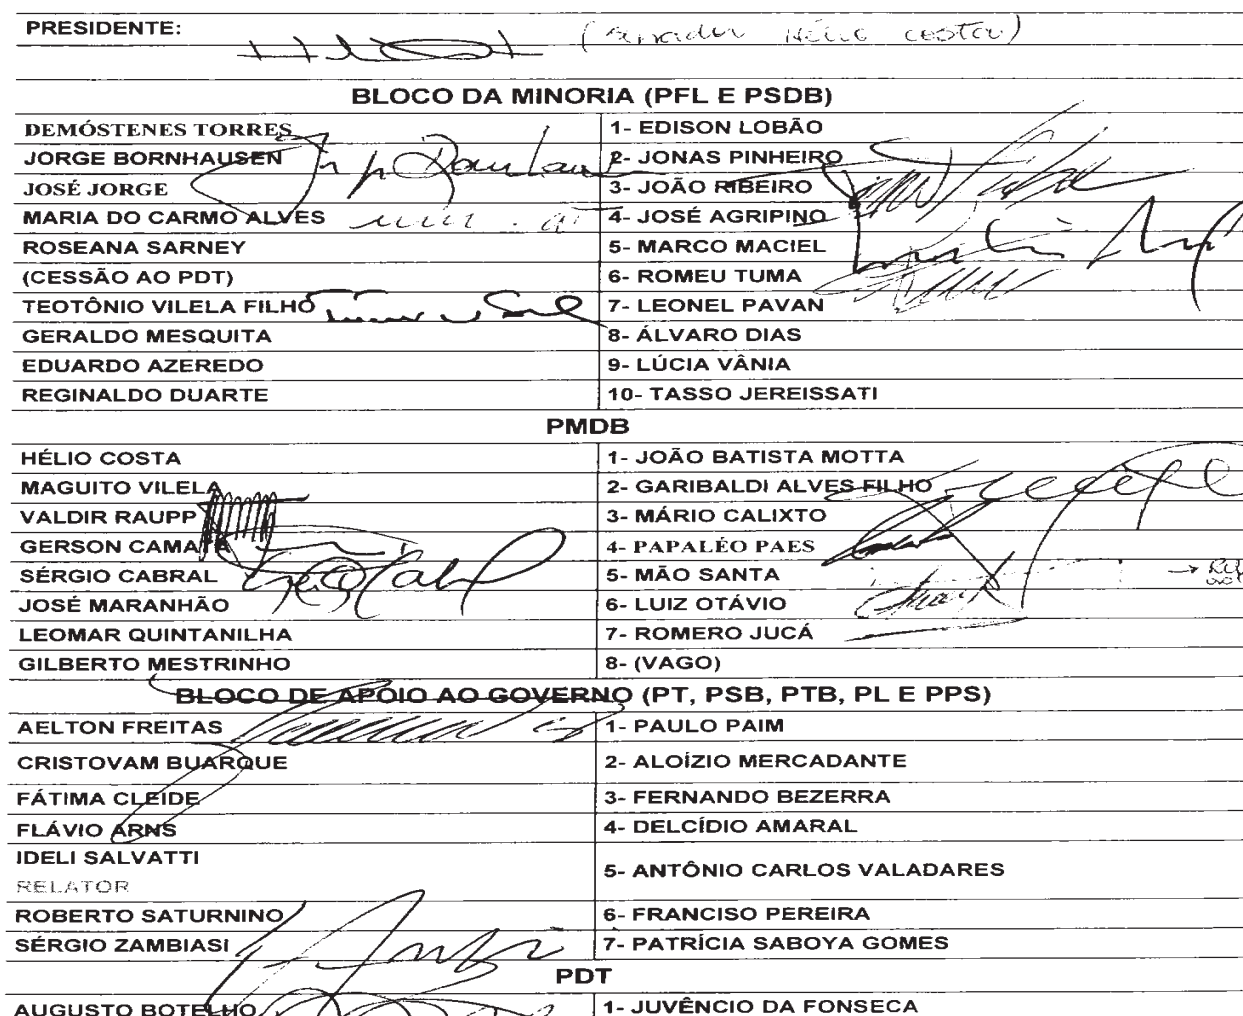 PRESIDENTE: (Senador Hélio Costa)
BLOCO DA MINORIA (PFL E PSDB)
DEMÓSTENES TORRES 1- EDISON LOBÃO
JORGE BORNHAUSEN 2- JONAS PINHEIRO
JOSÉ JORGE 3- JOÃO RIBEIRO
MARIA DO CARMO ALVES 4- JOSÉ AGRIPINO
ROSEANA SARNEY 5- MARCO MACIEL
(CESSÃO AO PDT) 6- ROMEU TUMA
TEOTÔNIO VILELA FILHO 7- LEONEL PAVAN
GERALDO MESQUITA 8- ÁLVARO DIAS
EDUARDO AZEREDO 9- LÚCIA VÂNIA
REGINALDO DUARTE 10- TASSO JEREISSATI
PMDB
HÉLIO COSTA 1- JOÃO BATISTA MOTTA
MAGUITO VILELA 2- GARIBALDI ALVES FILHO
VALDIR RAUPP 3- MÁRIO CALIXTO
GERSON CAMATA 4- PAPALÉO PAES
SÉRGIO CABRAL 5- MÃO SANTA
JOSÉ MARANHÃO 6- LUIZ OTÁVIO
LEOMAR QUINTANILHA 7- ROMERO JUCÁ
GILBERTO MESTRINHO 8- (VAGO)
BLOCO DE APOIO AO GOVERNO (PT, PSB, PTB, PL E PPS)
AELTON FREITAS 1- PAULO PAIM
CRISTOVAM BUARQUE 2- ALOÍZIO MERCADANTE
FÁTIMA CLEIDE 3- FERNANDO BEZERRA
FLÁVIO ARNS 4- DELCÍDIO AMARAL
IDELI SALVATTI
RELATOR 5- ANTÔNIO CARLOS VALADARES
ROBERTO SATURNINO 6- FRANCISO PEREIRA
SÉRGIO ZAMBIASI 7- PATRÍCIA SABOYA GOMES
PDT
AUGUSTO BOTELHO 1- JUVÊNCIO DA FONSECA